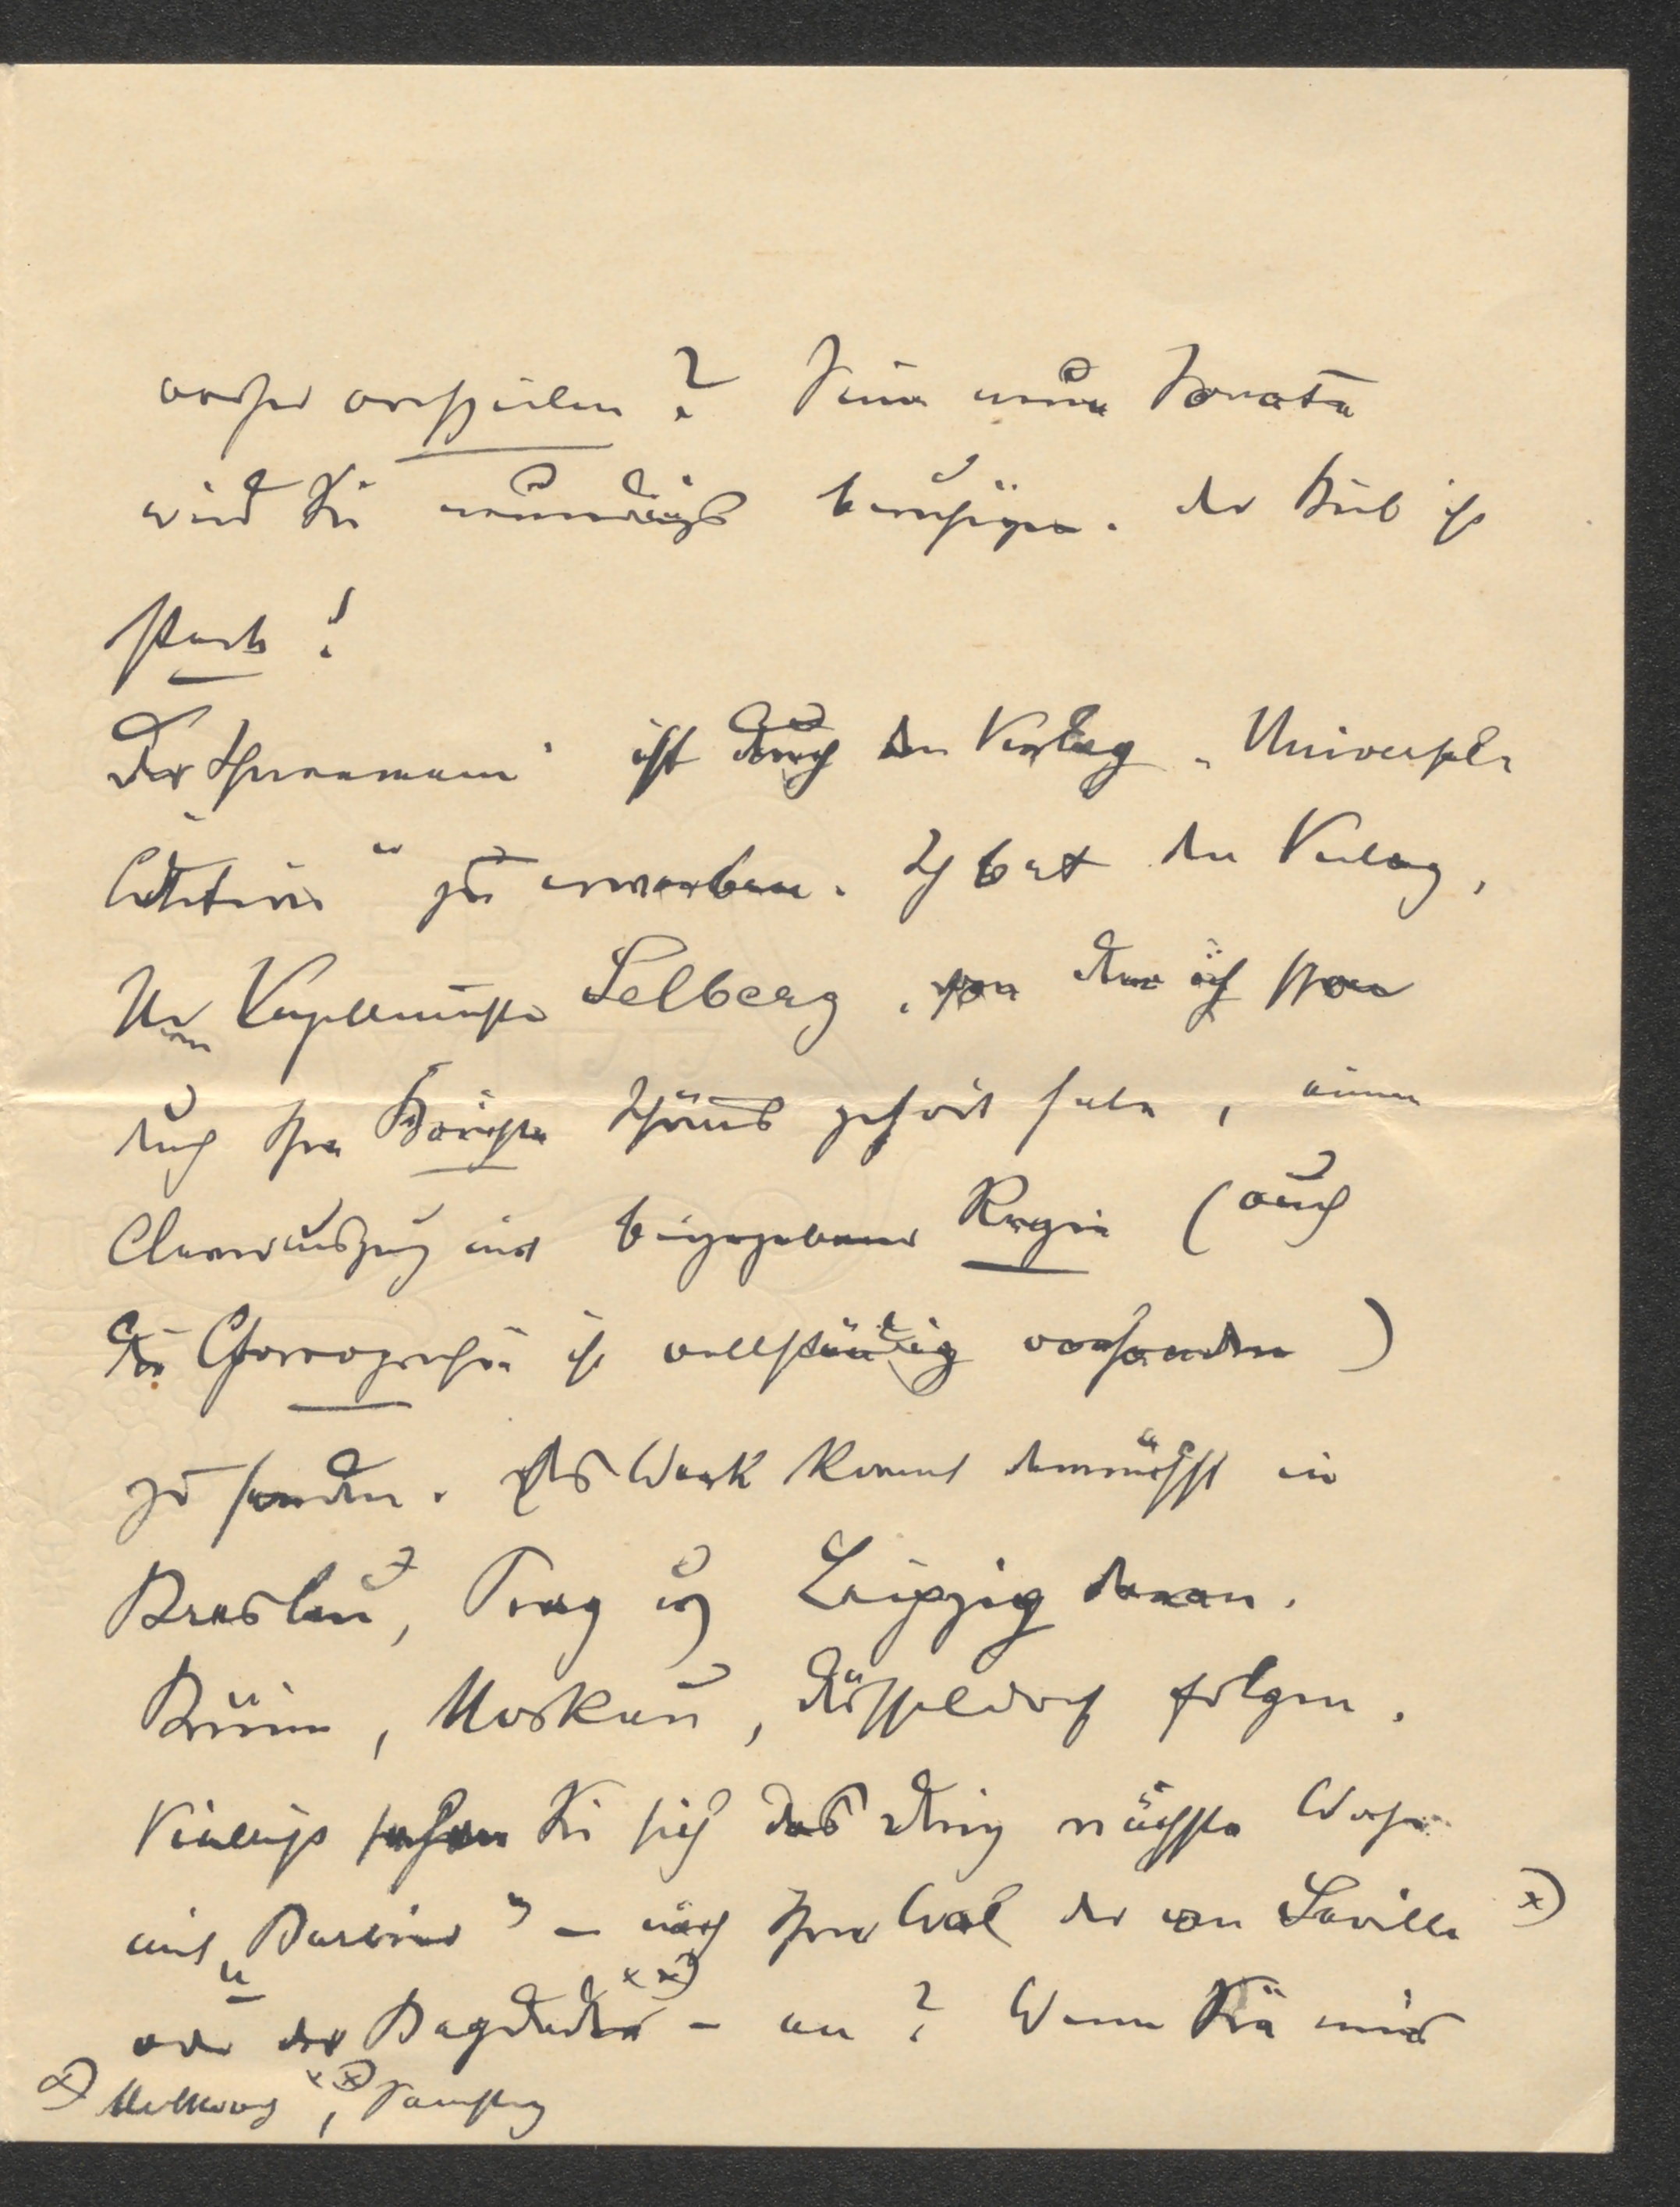 vorher vorspielen? Seine neue Sonate
wird Sie unbedingt beruhigen. Der Bub ist
stark!
"Der Schneemann" ist durch den Verlag "Universal-
Edition" zu erwerben. Ich bat den Verlag,
Herrn Kapellmeister Selberg, von dem ich schon
durch Ihre Schönes gehört habe, einen
Clavierauszug mit beigegebener Regie (auch
die Choreographie ist vollständig vorhanden)
zu senden. Das Werk kommt demnächst in
Breslau, Prag u. Leipzig daran.
Brünn, Moskau, Düsseldorf folgen.
Vielleicht sehen Sie sich das Ding nächste Woche
mit "Barbier" – nach Ihrer Wahl der von Sevilla x)
oder der Bagdader xx) – an? Wenn Sie mir
x) Mittwoch, xx) Samstag